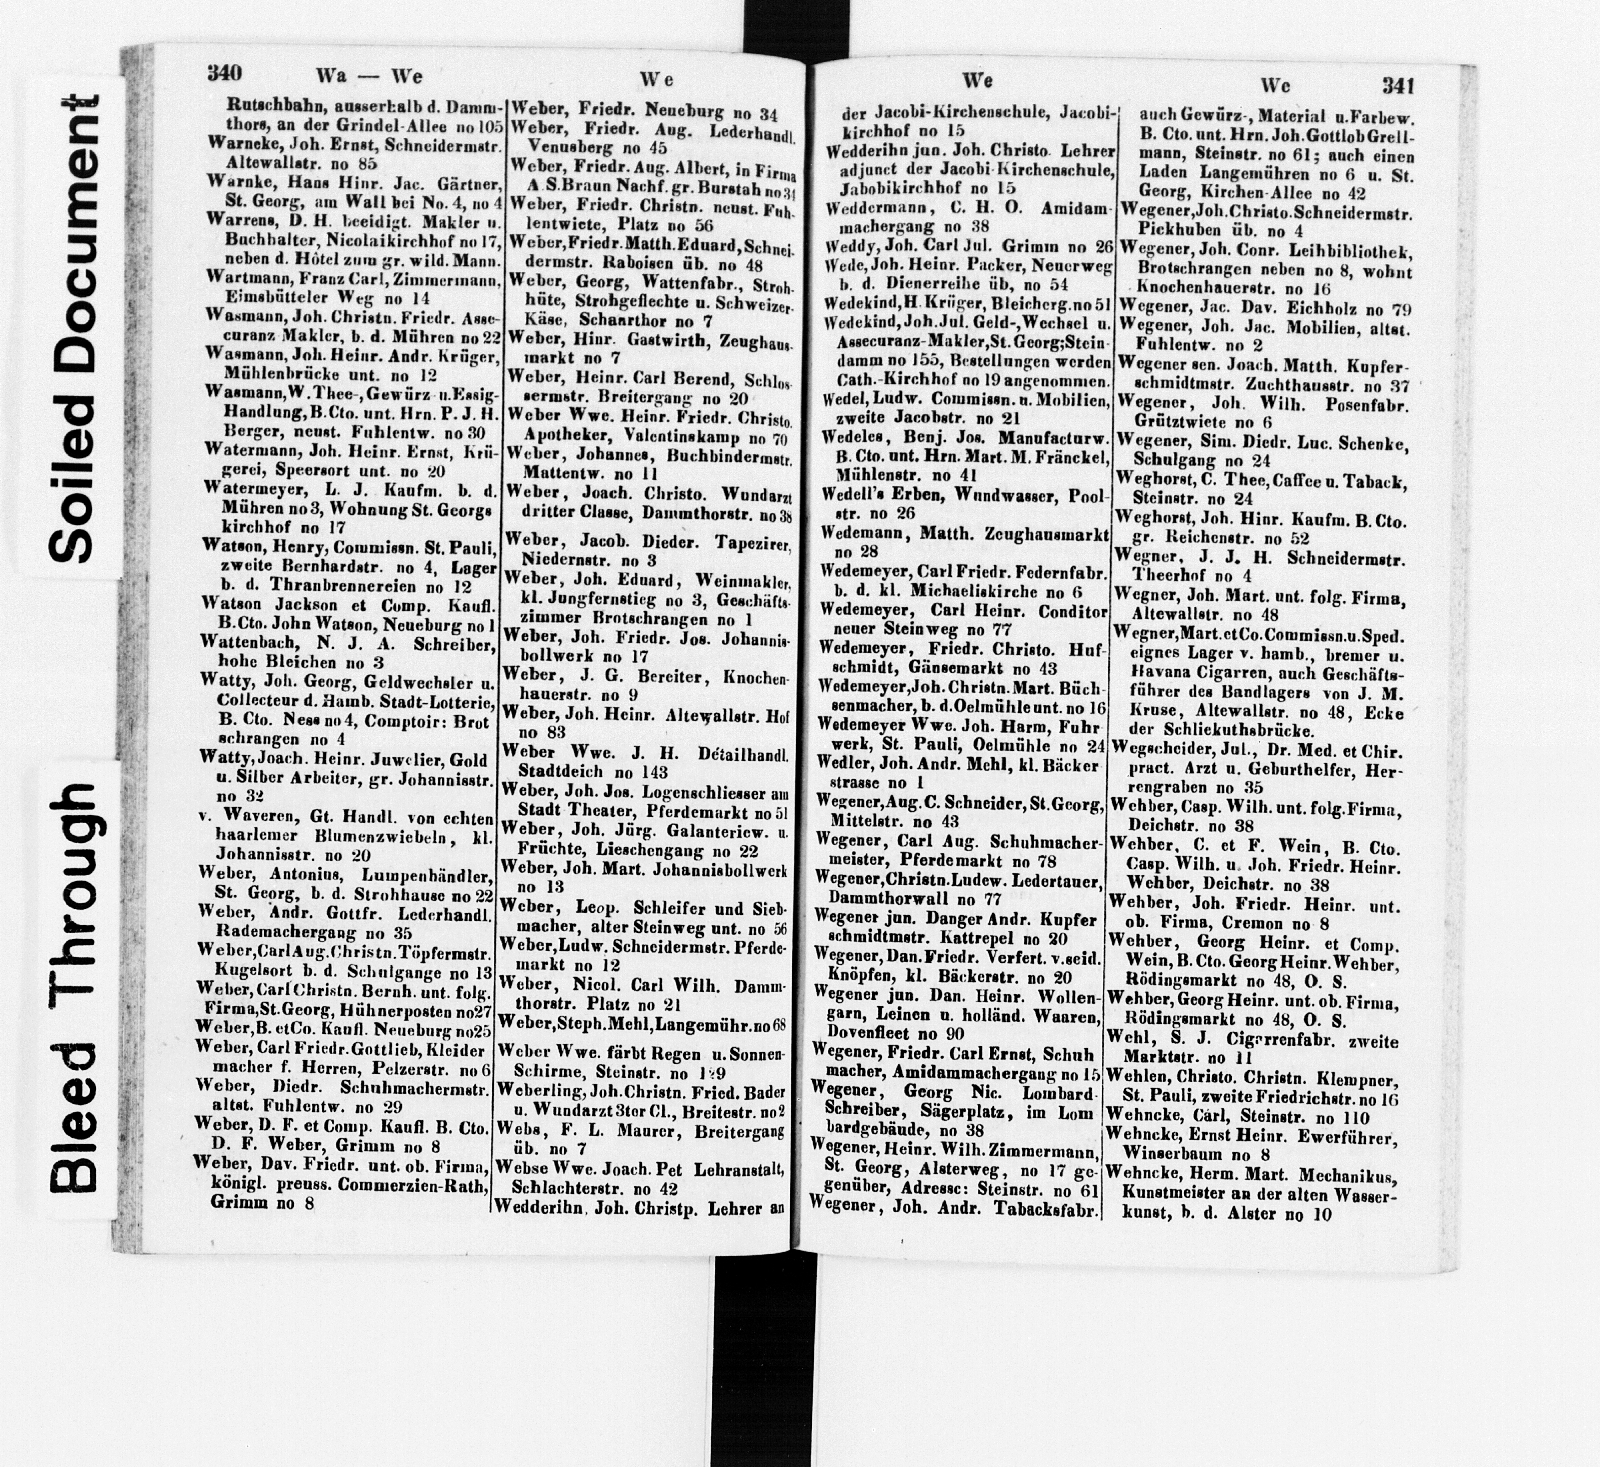 Soiled Document
Bleed Through
340
Wa — We
We
Rutschbahn, ausserhalb d. Damm-
thors, an der Grindel-Allee no 105
Warneke, Joh. Ernst, Schneidermstr.
Altewallstr. no 85
Warnke, Hans Hinr. Jac. Gärtner,
St. Georg, am Wall bei No. 4, no 4
Warrens, D. H. beeidigt. Makler u.
Buchhalter, Nicolaikirchhof no 17,
neben d. Hôtel zum gr. wild. Mann.
Wartmann, Franz Carl, Zimmermann,
Eimsbütteler Weg no 14
Wasmann, Joh. Christn. Friedr. Asse-
curanz Makler, b. d. Mühren no 22
Wasmann, Joh. Heinr. Andr. Krüger,
Mühlenbrücke unt. no 12
Wasmann, W. Thee-, Gewürz- u. Essig-
Handlung, B. Cto. unt. Hrn. P. J. H.
Berger, neust. Fuhlentw. no 30
Watermann, Joh. Heinr. Ernst, Krü-
gerei, Speersort unt. no 20
Watermeyer, L. J. Kaufm. b. d.
Mühren no 3, Wohnung St. Georgs
kirchhof no 17
Watson, Henry, Commissn. St. Pauli,
zweite Bernhardstr. no 4, Lager
b. d. Thranbrennereien no 12
Watson Jackson et Comp. Kaufl.
B. Cto. John Watson, Neueburg no 1
Wattenbach, N. J. A. Schreiber,
hohe Bleichen no 3
Watty, Joh. Georg, Geldwechsler u.
Collecteur d. Hamb. Stadt-Lotterie,
B. Cto. Ness no 4, Comptoir: Brot
schrangen no 4
Watty, Joach. Heinr. Juwelier, Gold
u. Silber Arbeiter, gr. Johannisstr.
no 32
v. Waveren, Gt. Handl. von echten
haarlemer Blumenzwiebeln, kl.
Johannisstr. no 20
Weber, Antonius, Lumpenhändler,
St. Georg, b. d. Strohhause no 22
Weber, Andr. Gottfr. Lederhandl.
Rademachergang no 35
Weber, Carl Aug. Christn. Töpfermstr.
Kugelsort b. d. Schulgange no 13
Weber, Carl Christn. Bernh. unt. folg.
Firma, St. Georg, Hühnerposten no 27
Weber, B. et Co. Kaufl. Neueburg no 25
Weber, Carl Friedr. Gottlieb, Kleider
macher f. Herren, Pelzerstr. no 6
Weber, Diedr. Schuhmachermstr.
altst. Fuhlentw. no 29
Weber, D. F. et Comp. Kaufl. B. Cto.
D. F. Weber, Grimm no 8
Weber, Dav. Friedr. unt. ob. Firma,
königl. preuss. Commerzien-Rath,
Grimm no 8
Weber, Friedr. Neueburg no 34
Weber, Friedr. Aug. Lederhandl.
Venusberg no 45
Weber, Friedr. Aug. Albert, in Firma
A. S. Braun Nachf. gr. Burstah no 34
Weber, Friedr. Christn. neust. Fuh-
lentwiete, Platz no 56
Weber, Friedr. Matth. Eduard, Schnei-
dermstr. Raboisen üb. no 48
Weber, Georg, Wattenfabr., Stroh-
hüte, Strohgeflechte u. Schweizer-
Käse, Schaarthor no 7
Weber, Hinr. Gastwirth, Zeughaus-
markt no 7
Weber, Heinr. Carl Berend, Schlos-
sermstr. Breitergang no 20
Weber Wwe. Heinr. Friedr. Christo.
Apotheker, Valentinskamp no 70
Weber, Johannes, Buchbindermstr.
Mattentw. no 11
Weber, Joach. Christo. Wundarzt
dritter Classe, Dammthorstr. no 38
Weber, Jacob. Dieder. Tapezirer,
Niedernstr. no 3
Weber, Joh. Eduard, Weinmakler,
kl. Jungfernstieg no 3, Geschäfts-
zimmer Brotschrangen no 1
Weber, Joh. Friedr. Jos. Johannis-
bollwerk no 17
Weber, J. G. Bereiter, Knochen-
hauerstr. no 9
Weber, Joh. Heinr. Altewallstr. Hof
no 83
Weber Wwe. J. H. Détailhandl.
Stadtdeich no 143
Weber, Joh. Jos. Logenschliesser am
Stadt Theater, Pferdemarkt no 51
Weber, Joh. Jürg. Galanteriew. u.
Früchte, Lieschengang no 22
Weber, Joh. Mart. Johannisbollwerk
no 13
Weber, Leop. Schleifer und Sieb-
macher, alter Steinweg unt. no 56
Weber, Ludw. Schneidermstr. Pferde-
markt no 12
Weber, Nicol. Carl Wilh. Damm-
thorstr. Platz no 21
Weber, Steph. Mehl, Langemühr. no 68
Weber Wwe. färbt Regen u. Sonnen-
Schirme, Steinstr. no
Weberling, Joh. Christn. Fried. Bader
u. Wundarzt 3ter Cl., Breitestr. no 2
Webs, F. L. Maurer, Breitergang
üb. no 7
Webse Wwe. Joach. Pet Lehranstalt,
Schlachterstr. no 42
Wedderihn, Joh. Christp. Lehrer an
We
We
341
der Jacobi-Kirchenschule, Jacobi-
kirchhof no 15
Wedderihn jun. Joh. Christo. Lehrer
adjunct der Jacobi-Kirchenschule,
Jabobikirchhof no 15
Weddermann, C. H. O. Amidam-
machergang no 38
Weddy, Joh. Carl Jul. Grimm no 26
Wede, Joh. Heinr. Packer, Neuerweg
b. d. Dienerreihe üb, no 54
Wedekind, H. Krüger, Bleicherg. no 51
Wedekind, Joh. Jul. Geld-, Wechsel u.
Assecuranz-Makler, St. Georg; Stein-
damm no 155, Bestellungen werden
Cath.-Kirchhof no 19 angenommen.
Wedel, Ludw. Commissn. u. Mobilien,
zweite Jacobstr. no 21
Wedeles, Benj. Jos. Manufacturw.
B. Cto. unt. Hrn. Mart. M. Fränckel,
Mühlenstr. no 41
Wedell's Erben, Wundwasser, Pool-
str. no 26
Wedemann, Matth. Zeughausmarkt
no 28
Wedemeyer, Carl Friedr. Federnfabr.
b. d. kl. Michaeliskirche no 6
Wedemeyer, Carl Heinr. Conditor
neuer Steinweg no 77
Wedemeyer, Friedr. Christo. Huf-
schmidt, Gänsemarkt no 43
Wedemeyer, Joh. Christn. Mart. Büch-
senmacher, b. d. Oelmühle unt. no 16
Wedemeyer Wwe. Joh. Harm, Fuhr
werk, St. Pauli, Oelmühle no 24
Wedler, Joh. Andr. Mehl, kl. Bäcker
strasse no 1
Wegener, Aug. C. Schneider, St. Georg,
Mittelstr. no 43
Wegener, Carl Aug. Schuhmacher-
meister, Pferdemarkt no 78
Wegener, Christn. Ludew. Ledertauer,
Dammthorwall no 77
Wegener jun. Danger Andr. Kupfer
schmidtmstr. Kattrepel no 20
Wegener, Dan. Friedr. Verfert. v. seid.
Knöpfen, kl. Bäckerstr. no 20
Wegener jun. Dan. Heinr. Wollen-
garn, Leinen u. holländ. Waaren,
Dovenfleet no 90
Wegener, Friedr. Carl Ernst, Schuh
macher, Amidammachergang no 15
Wegener, Georg Nic. Lombard-
Schreiber, Sägerplatz, im Lom
bardgebäude, no 38
Wegener, Heinr. Wilh. Zimmermann,
St. Georg, Alsterweg, no 17 ge-
genüber, Adresse: Steinstr. no 61
Wegener, Joh. Andr. Tabacksfabr.
auch Gewürz-, Material u. Farbew.
B. Cto. unt. Hrn. Joh. Gottlob Grell-
mann, Steinstr. no 61; auch einen
Laden Langemühren no 6 u. St.
Georg, Kirchen-Allee no 42
Wegener, Joh. Christo. Schneidermstr.
Pickhuben üb. no 4
Wegener, Joh. Conr. Leihbibliothek,
Brotschrangen neben no 8, wohnt
Knochenhauerstr. no 16
Wegener, Jac. Dav. Eichholz no 79
Wegener, Joh. Jac. Mobilien, altst.
Fuhlentw. no 2
Wegener sen. Joach. Matth. Kupfer-
schmidtmstr. Zuchthausstr. no 37
Wegener, Joh. Wilh. Posenfabr.
Grütztwiete no 6
Wegener, Sim. Diedr. Luc. Schenke,
Schulgang no 24
Weghorst, C. Thee, Caffee u. Taback,
Steinstr. no 24
Weghorst, Joh. Hinr. Kaufm. B. Cto.
gr. Reichenstr. no 52
Wegner, J. J. H. Schneidermstr.
Theerhof no 4
Wegner, Joh. Mart. unt. folg. Firma,
Altewallstr. no 48
Wegner, Mart. et Co. Commissn. u. Sped.
eignes Lager v. hamb., bremer u.
Havana Cigarren, auch Geschäfts-
führer des Bandlagers von J. M.
Kruse, Altewallstr. no 48, Ecke
der Schlickuthsbrücke.
Wegscheider, Jul., Dr. Med. et Chir.
pract. Arzt u. Geburthelfer, Her-
rengraben no 35
Wehber, Casp. Wilh. unt. folg. Firma,
Deichstr. no 38
Wehber, C. et F. Wein, B. Cto.
Casp. Wilh. u. Joh. Friedr. Heinr.
Wehber, Deichstr. no 38
Wehber, Joh. Friedr. Heinr. unt.
ob. Firma, Cremon no 8
Wehber, Georg Heinr. et Comp.
Wein, B. Cto. Georg Heinr. Wehber,
Rödingsmarkt no 48, O. S.
Wehber, Georg Heinr. unt. ob. Firma,
Rödingsmarkt no 48, O. S.
Wehl, S. J. Cigarrenfabr. zweite
Marktstr. no 11
Wehlen, Christo. Christn. Klempner,
St. Pauli, zweite Friedrichstr. no 16
Wehncke, Carl, Steinstr. no 110
Wehncke, Ernst Heinr. Ewerführer,
Winserbaum no 8
Wehncke, Herm. Mart. Mechanikus,
Kunstmeister an der alten Wasser-
kunst, b. d. Alster no 10